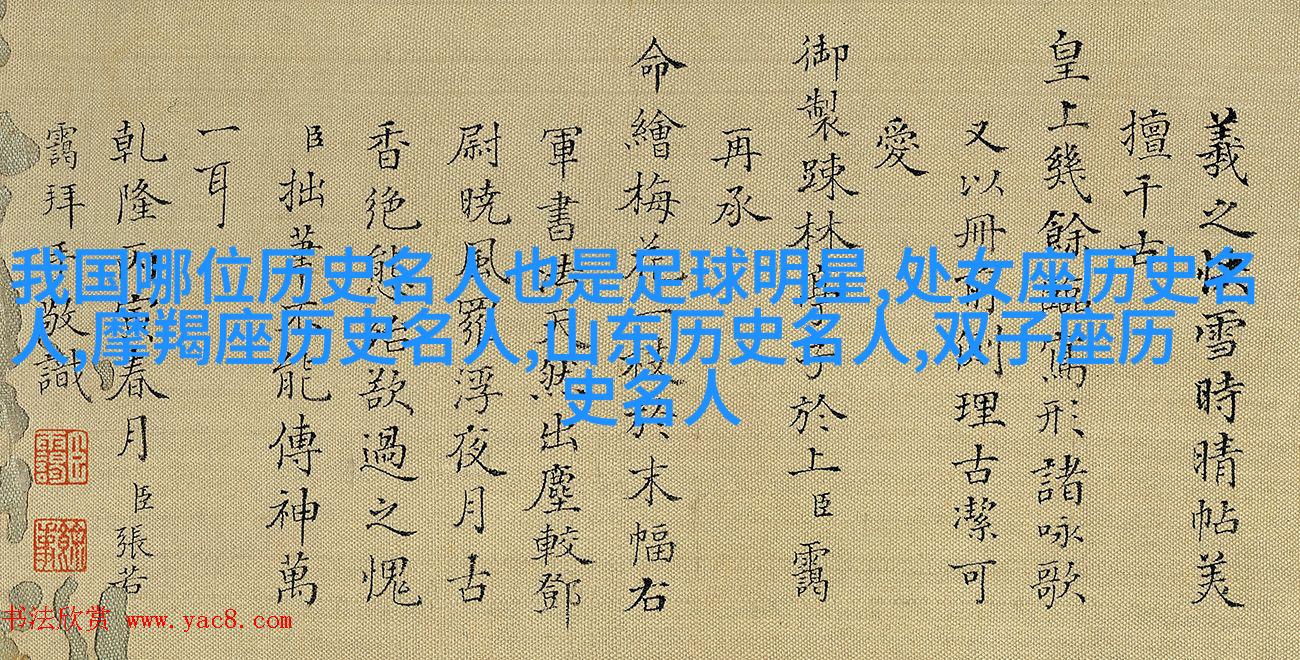 我国哪位历史名人也是足球明星,处女座历史名
人,摩羯座历史名人,山东历史名人,双子座历
史名人
羲之快雪時晴帖美
擅千古
皇上幾餘臨寫形諸咏歌
又以冊前側理古潔可
愛
御製踈林亭子於上臣靄
再承
命繪梅花一枝於末幅右
軍書法天然出塵較鄧
尉曉風羅浮夜月古
香絶態殆欲過之愧
臣拙筆不能傳神萬
一耳
乾隆丙寅春月臣張若
靄拜手敬識
书法欣赏 www.yac8.com